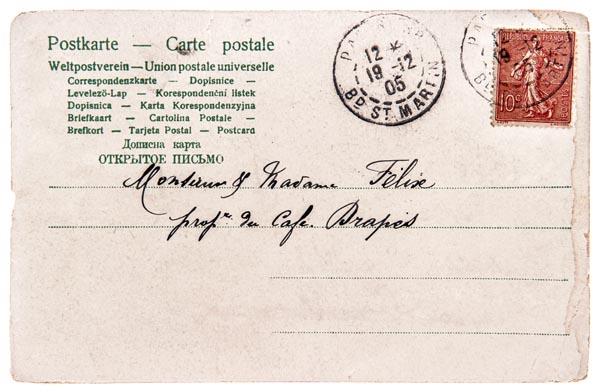 Postkarte — Carte postale
Weltpostverein — Union postale universelle
Correspondenzkarte — Dopisnice —
Levelező-Lap — Korespondenční listek
Dopisnica — Karta Korespondenzyjna
Briefkaart — Cartolina Postale —
Brefkort — Tarjeta Postal — Postcard
Дописна карта
ОТКРЫТОЕ ПИСЬМО
12 *
19 -12
05
BD ST MARTIN
10c
Monsieur & Madame Félixe
propr. du Cafe. Brapés